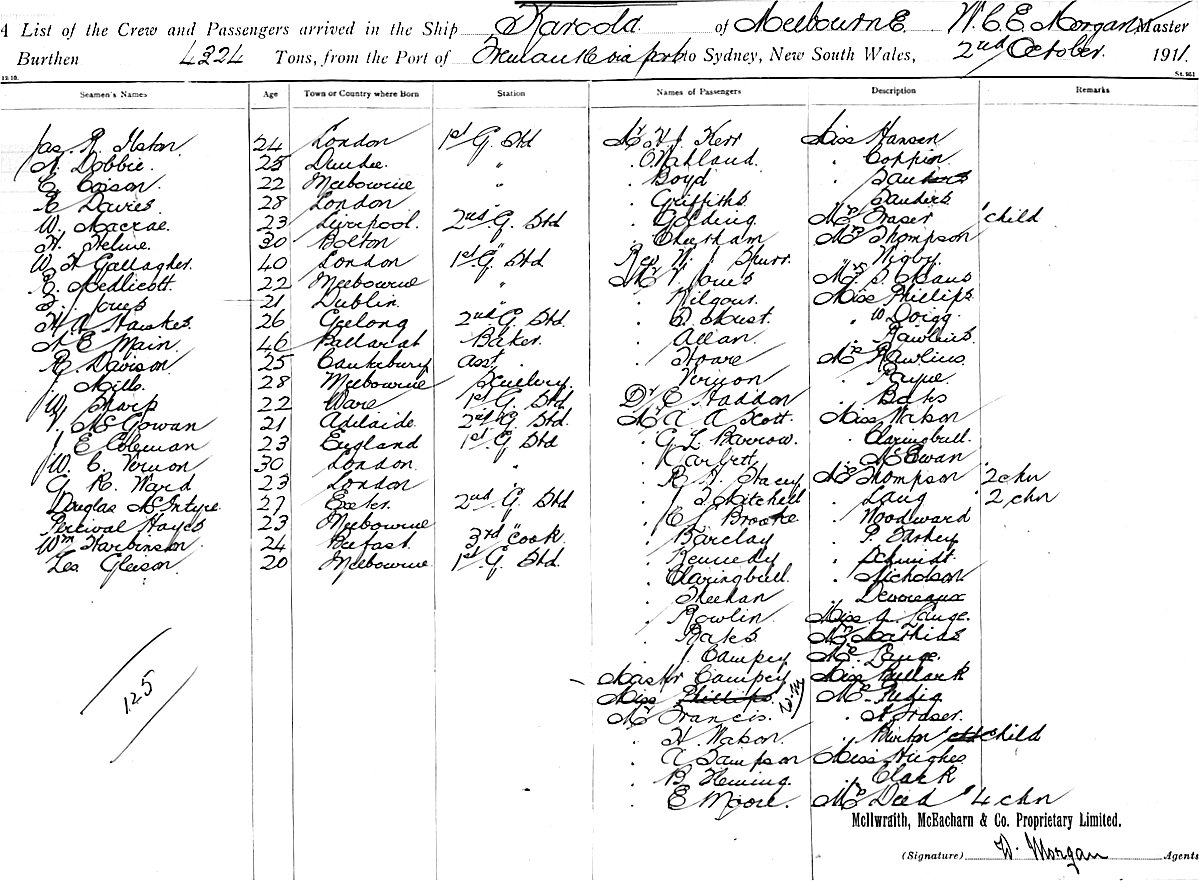 A List of the Crew and Passengers arrived in the Ship Karoola of Melbourne W. C. E. Morgan Master
Burthen 4324 Tons, from the Port of Fremantle via ports to Sydney, New South Wales, 2nd October. 1911.
12.10. St. 951
Seamen's Names Age Town or Country where Born Station Names of Passengers Description Remarks
Jas. R. 24 London 1st G. Std Mr H J Kerr Miss Hansen
A. Dobbie. 25 Dundee. " . . Coppin
C. 22 Melbourne " . Boyd .
E. Davies. 28 London . Griffiths . Sanders
W. Macrae. 23 Liverpool. 2nd G. Std . Golding Mrs Fraser 1 child
30 Bolton " . Cheetham Mrs Thompson
W. H. Gallagher. 40 London 1st G. Std Rev W. J. . Wigby
E. Medlicott. 22 Melbourne " Mr V Jones
Jones 21 Dublin. " . Kilgour. Miss Phillips
H. A. Hawkes 26 Geelong 2nd G. Std. .
A E Main. 46 Ballarat Baker. . Allan . Rawlins
R. Davison 25 Canterbury asst . . Hoare Mrs Rawlins
J. Mills. 28 Melbourne Scullery. . Vernon . Payne.
W. Sharp 22 Ware 1st G. Std Dr E. Haddon . Bates
V. McGowan 21 Adelaide. 2nd G. Std. Mr A A Scott. Miss Watson
J E Coleman 23 England 1st G Std . G. L Barrow. . Claringbull.
W. C. Vernon 30 London. " . Corbett . McEwan
G. R. Ward 23 London " . R. H. Stacey Mrs Thompson 2 chn
Douglas McIntyre 27 Exeter. 2nd G. Std . J T Mitchell . Lang 2 chn
Percival Hayes 23 Melbourne " . C. J. Brooke . Woodward
Wm Harbinson 24 Belfast. 3rd cook . Barclay . P.
Les Gleison. 20 Melbourne 1st G. Std. . Kennedy . Schmidt.
. Claringbull. . Nicholson
. Sheehan . Devereaux
. Rowlin Miss J. Lange.
. Bates
. J. Campey Mrs Lange.
125 Master Campey Miss Bullark
Miss Phillips
Mr Francis. . A Fraser.
. H. Watson. . Burton child
. A Sampson Miss Hughes
. B. Fleming. . Clark
. E Moore. Mrs Deed 4 chn
McIlwraith, McEacharn & Co. Proprietary Limited.
(Signature) W. Morgan Agents